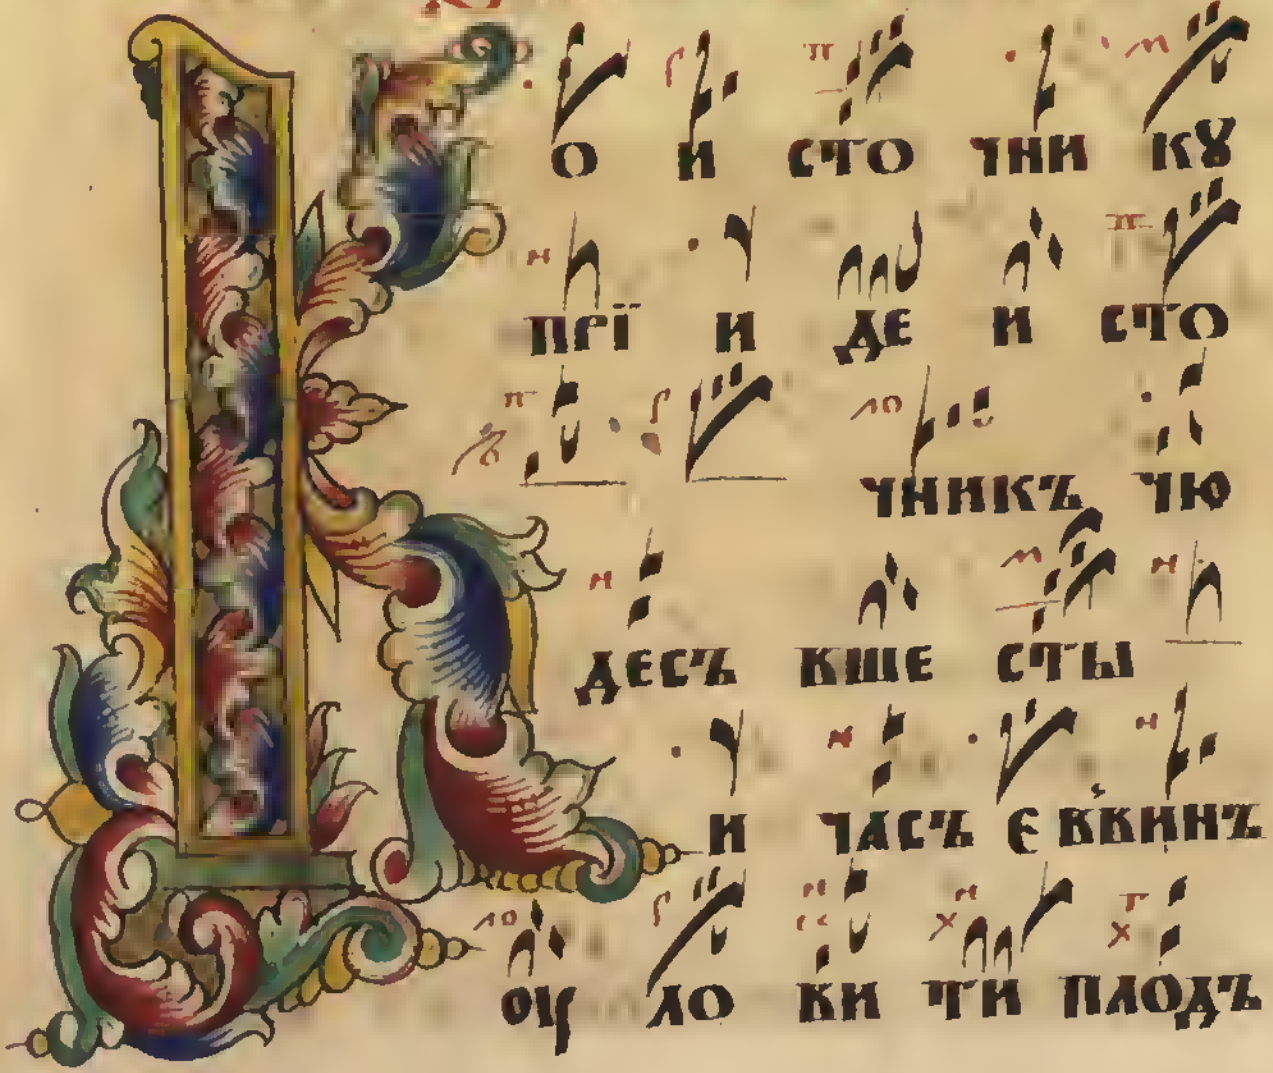 К о и сто чни кꙋ
прї и де и сто
чникъ чю
десъ вше сты
и часъ є ввинъ
оу ло ви ти плодъ